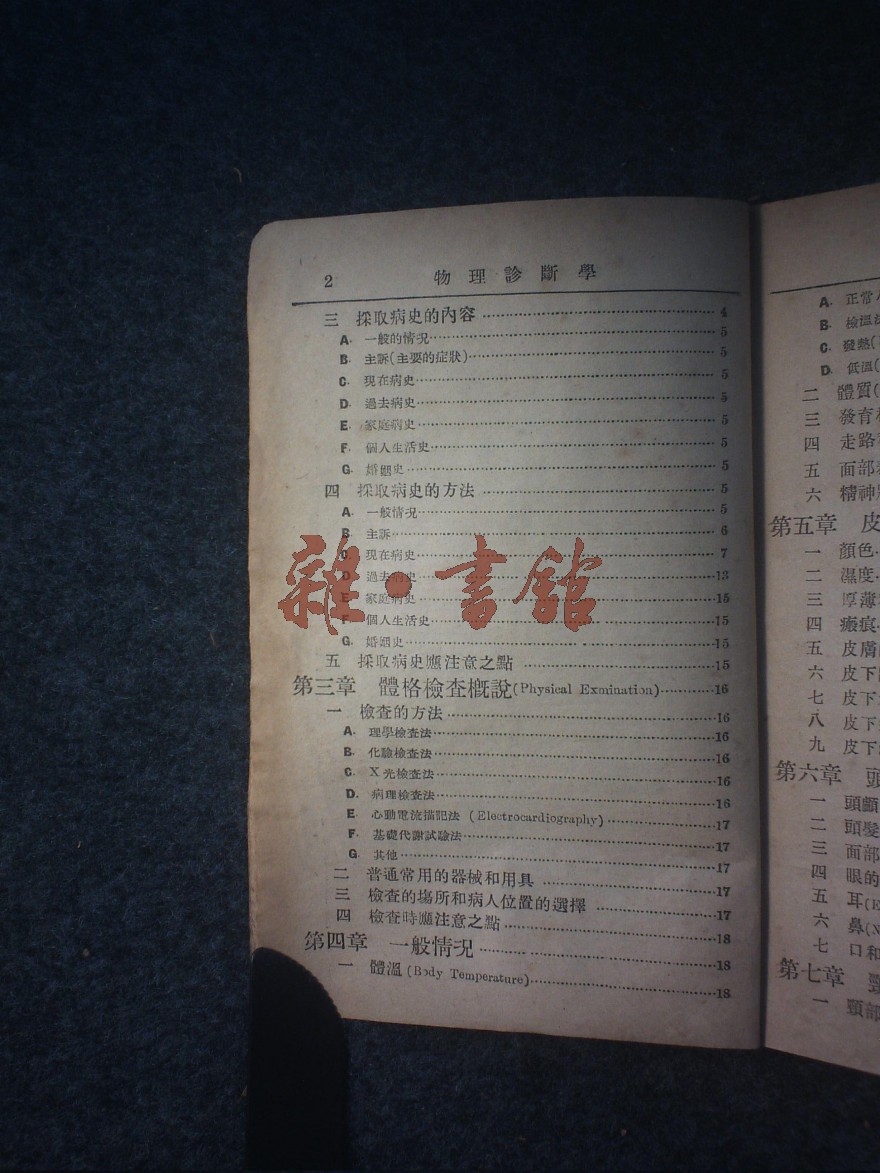 2 物理診斷學
三 採取病史的內容 4
A. 一般的情况 5
B. 主訴(主要的症狀) 5
C. 現在病史 5
D. 過去病史 5
E. 家庭病史 5
F. 個人生活史 5
G. 婚姻史 5
四 採取病史的方法 5
A. 一般情况 5
B. 主訴 6
C. 現在病史 7
D. 過去病史 13
E. 家庭病史 15
F. 個人生活史 15
G. 婚姻史 15
五 採取病史應注意之點 15
雜·書館
第三章 體格檢查概說(Physical Exmination) 16
一 檢查的方法 16
A. 理學檢查法 16
B. 化驗檢查法 16
C. X光檢查法 16
D. 病理檢查法 16
E. 心動電流描記法 (Electrocardiography) 17
F. 基礎代謝試驗法 17
G. 其他 17
二 普通常用的器械和用具 17
三 檢查的場所和病人位置的選擇 17
四 檢查時應注意之點 18
第四章 一般情况 18
一 體溫 (Body Temperature) 18
A. 正常
B. 檢溫
C. 發熱(
D. 低溫(
二 體質(
三 發育
四 走路
五 面部
六 精神
第五章 皮
一 顏色
二 濕度
三 厚薄
四 瘢痕
五 皮膚
六 皮下
七 皮下
八 皮下
九 皮下
第六章 頭
一 頭顱
二 頭髮
三 面部
四 眼的
五 耳(E
六 鼻(N
七 口和
第七章 頸
一 頸部